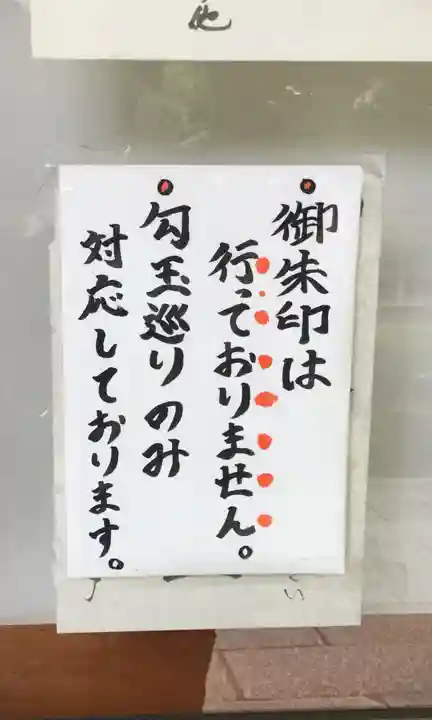 他
御朱印は
行っておりません。
勾玉巡りのみ
対応しております。
い